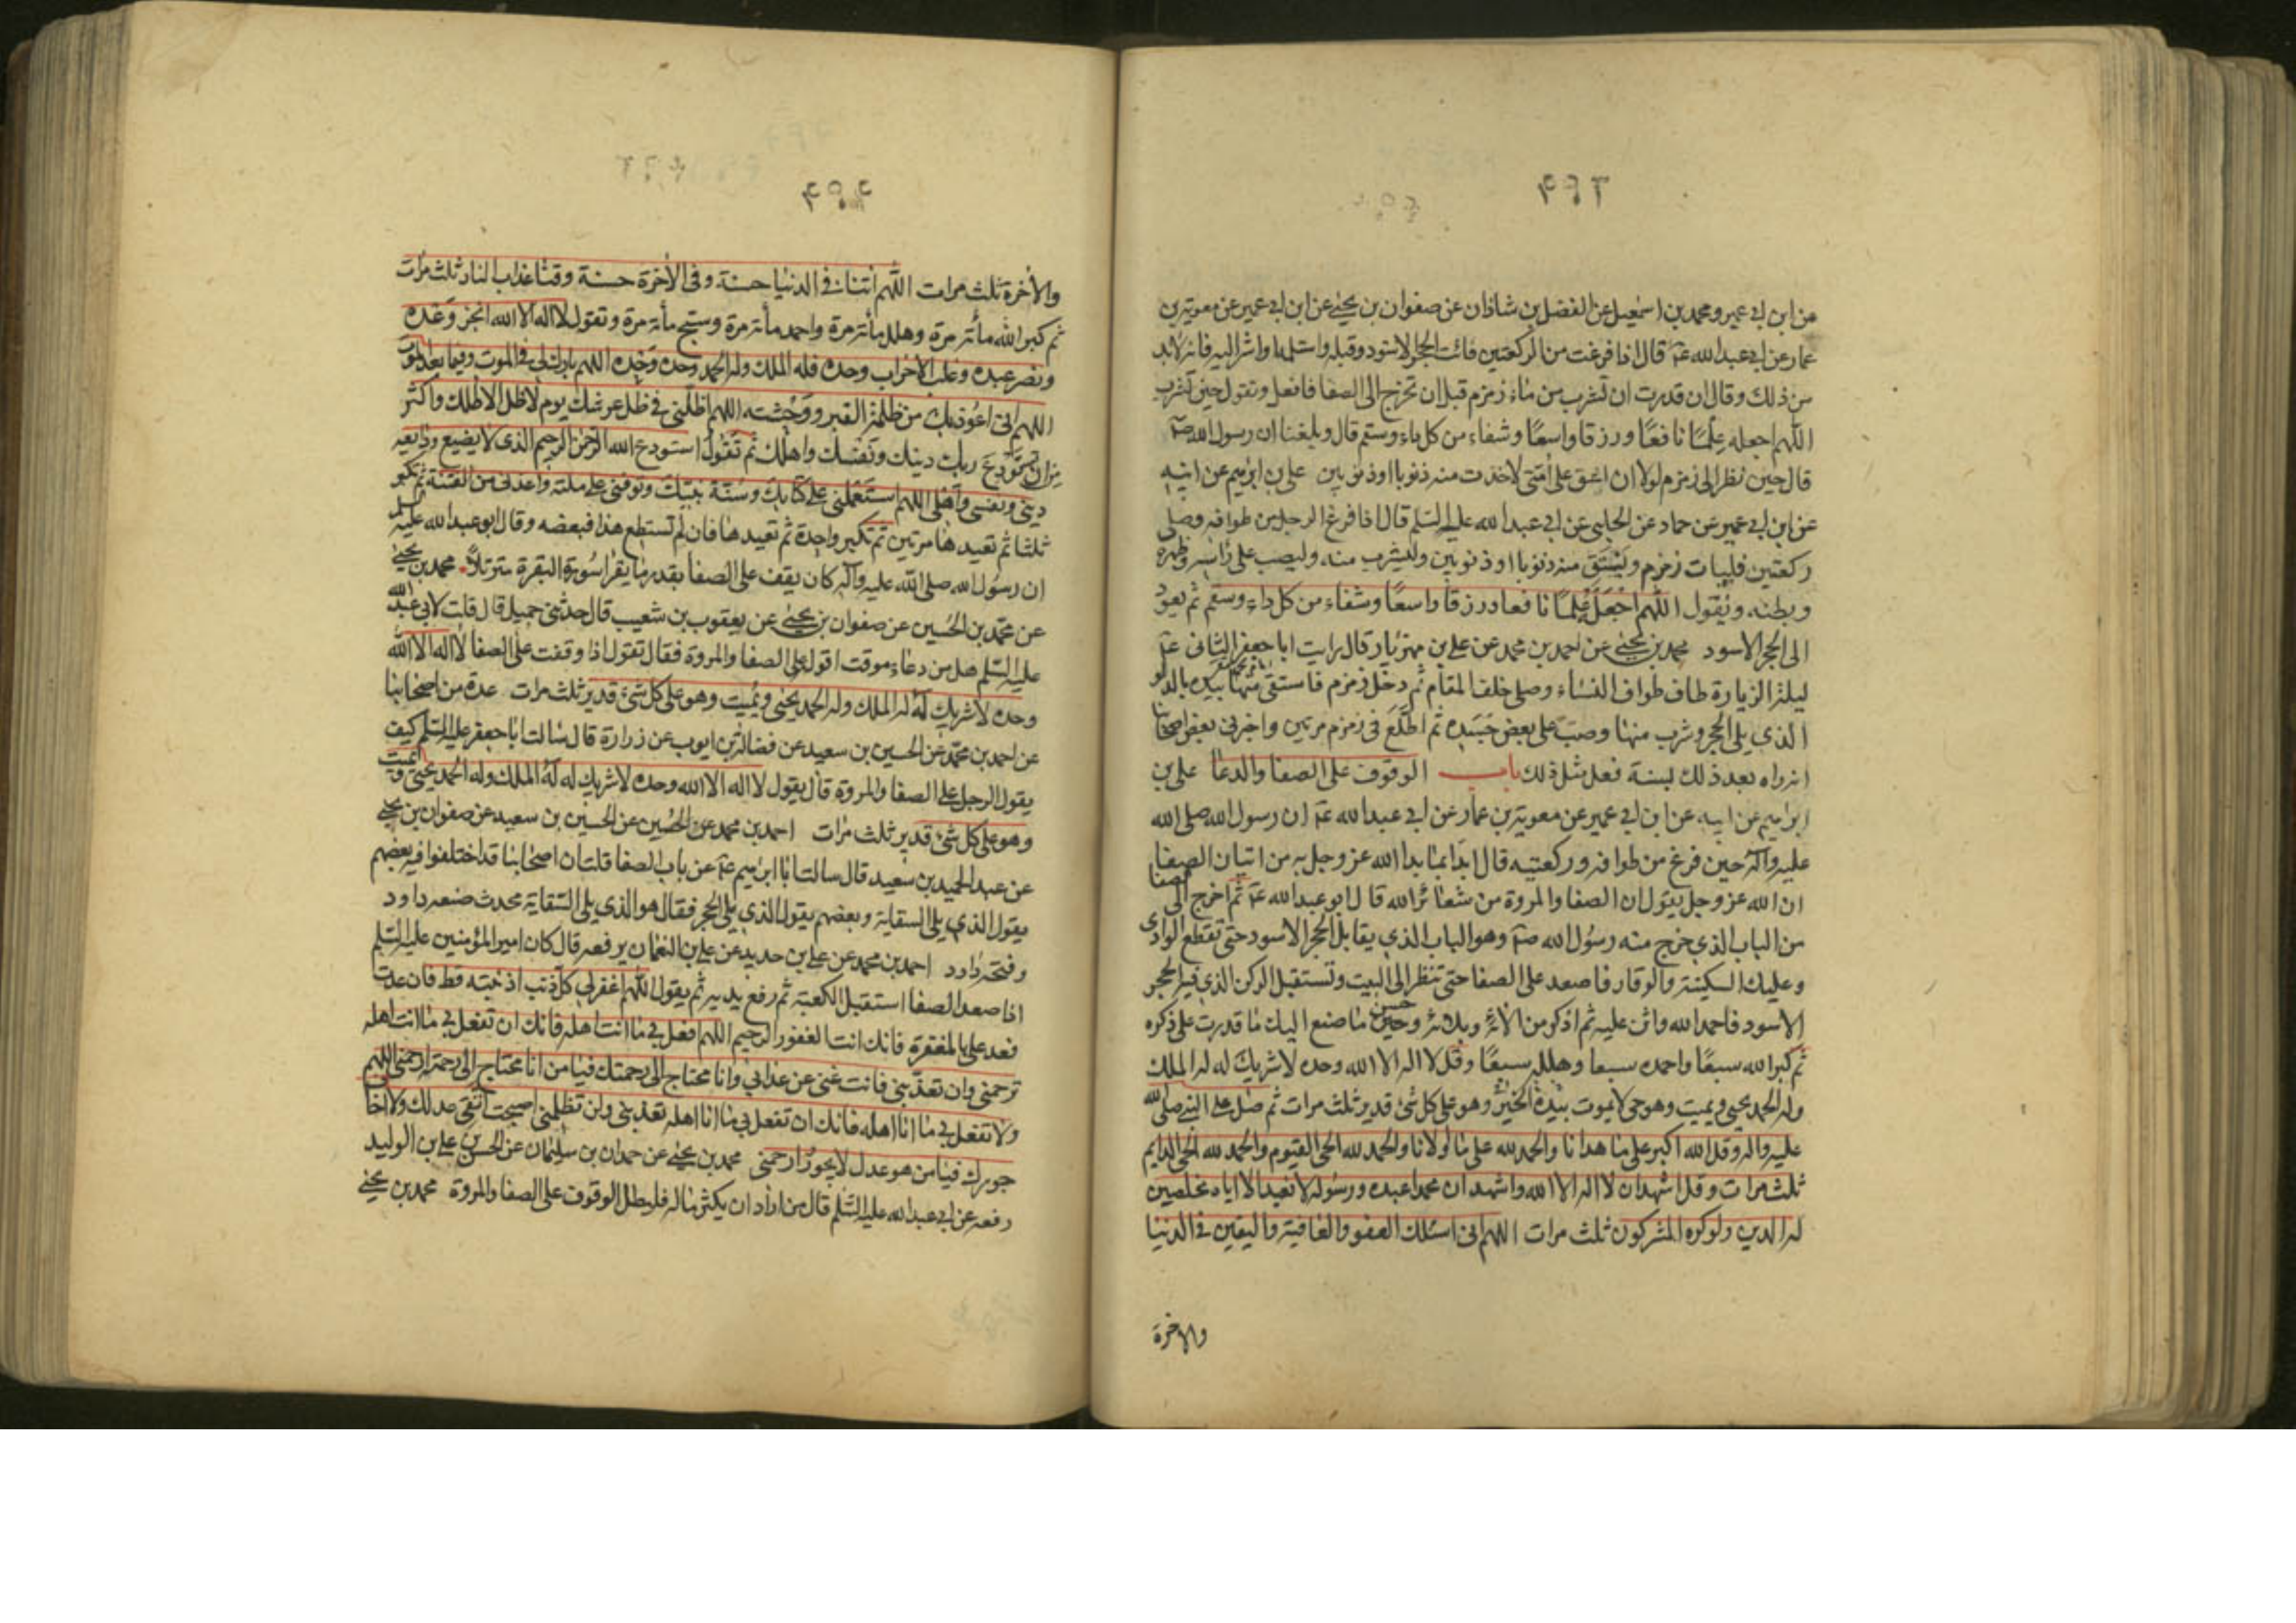 عن ابن ابي عمير ومحمد بن اسمعيل عن الفضل بن شاذان عن صفوان بن يحيى عن ابن ابي عمير عن معوية بن
عمار عن ابي عبد الله عم قال اذا فرغت من الركعتين فائت الحجر الاسود وقبله واستلمه او اشر اليه فانه لابد
من ذلك وقال ان قدرت ان تشرب من ماء زمزم قبل ان تخرج الى الصفا فافعل وتقول حين تشرب
اللهم اجعله عِلمًا نافعًا ورزقا واسعًا وشفاء من كل داء وسقم قال وبلغنا ان رسول الله صم
قال حين نظر الى زمزم لولا ان اشق على اُمتى لاخذت منه ذنوبا او ذنوبين علي بن ابرهيم عن ابيه
عن ابن ابي عمير عن حماد عن الحلبي عن ابي عبد الله عليه السلم قال اذا فرغ الرجل من طوافه وصلى
ركعتين فليات زمزم ويَسْتَق منه ذنوبا او ذنوبين وليشرب منه وليصب على راسه وظهره
وبطنه ويقول اللهم اجْعَله عِلمًا نافعا ورزقا واسعًا وشفاء من كل داء وسقم ثم يعود
الى الحجر الاسود محمد بن يحيى عن احمد بن محمد عن علي بن مهزيار قال رايت ابا جعفر الثاني عم
ليلة الزيارة طاف طواف النساء وصلى خلف المقام ثم دخل زمزم فاستقى منها بيده بالدلو
الذي يلى الحجر وشرب منها وصب على بعض جَسَده ثم اطّلَعَ في زمزم مرتين واخبرني بعض اصحابنا
انه رواه بعد ذلك لسنة فعل مثل ذلك باب الوقوف على الصفا والدعا علي بن
ابراهيم عن ابيه عن ابن ابي عمير عن معوية بن عمار عن ابي عبد الله عم ان رسول الله صلى الله
عليه وآله حين فرغ من طوافه وركعتيه قال ابدَا بمَا بدا الله عز وجل به من اتيان الصفا
ان الله عز وجل يقول ان الصفا والمروة من شعائر الله قال ابو عبد الله عم ثم اخرج الى الصفا
من الباب الذي خرج منه رسُول الله صم وهو الباب الذي يقابل الحجر الاسود حتى تقطع الوادى
وعليك السكينة والوقار فاصعد على الصفا حتى تنظر الى البيت وتستقبل الركن الذي فيه الحجر
الاسود فاحمد الله واثن عليه ثم اذكر من الائه وبلائه وحسن ما صنع اليك ما قدرت على ذكره
ثم كبر الله سبعًا واحمده سبعا وهلله سبعًا وقل لا اله الا الله وحده لا شريك له له الملك
وله الحمد يحيي ويميت وهو حي لا يموت بيَدِهِ الخير وهو على كل شئ قدير ثلث مرات ثم صل على النبي صلى الله
عليه واله وقل الله اكبر على ما هدانا والحمد لله على ما اولانا والحمد لله الحي القيوم والحمد لله الحي الدايم
ثلث مرات وقل اشهد ان لا اله الا الله واشهد ان محمدا عبده ورسوله لا نعبد الا اياه مخلصين
له الدين ولو كره المشركون ثلث مرات اللهم اني اسئلك العفو والعافية واليقين في الدنيا
والاخرة
والأخرة ثلث مرات اللهم اتنا في الدنيا حسنة وفى الأخرة حسنة وقنا عذاب النار ثلث مرات
ثم كبر الله مأة مرة وهلله مأة مرة واحمده مأة مرة وسبح مأة مرة وتقول لا اله الا الله انجز وَعده
ونصر عبده وغلب الأحزاب وحده فله الملك وله الحمد وحده وحده اللهم بارك لي في الموت وفيما بعد الموت
اللهم اني اعُوذ بك من ظلمة القبر ووحْشته اللهم اظلني في ظل عرشك يوم لا ظل الا ظلك واكثر
من ان تستودِعَ ربك دينك ونفسك واهلك ثم تَقُول استودع الله الرحمن الرحيم الذي لا يضيع ودايعه
ديني ونفسي وأهلي اللهم استَعْملني على كتابك وسُنة نبيّك وتوفني على ملته واعذني من الفتنة ثم تكبر
ثلثا ثم تعيدها مرتين ثم تكبر واحدة ثم تعيدها فان لم تستطع هذا فبعضه وقال ابو عبد الله عليه السلم
ان رسُول الله صلى الله عليه وآله كان يقف على الصفا بقدر ما يقرا سُورة البقرة مترتلاً محمد بن يحيى
عن محمد بن الحُسين عن صفوان بن يحيى عن يعقوب بن شعيب قال حدثني جميل قال قلت لابي عبد الله
عليه السلم هل من دعاء موقت اقوله على الصفا والمروة فقال تقول اذا وقفت على الصفا لا اله الا الله
وحده لا شريك لهُ له الملك وله الحمد يحيى ويُميت وهو على كل شئ قدير ثلث مرات عدة من اصحابنا
عن احمد بن محمد عن الحسين بن سعيد عن فضالة بن ايوب عن زرارة قال سَالت ابا جعفر عليه السلم كيف
يقول الرجل على الصفا والمروة قال يقول لا اله الا الله وحده لا شريك له لهُ الملك وله الحمد يحيى ويميت
وهو على كل شئ قدير ثلث مرات احمد بن محمد عن الحُسَين عن الحسين بن سعيد عن صفوان بن يحيى
عن عبد الحميد بن سعيد قال سالت ابا ابرهيم عم عن باب الصفا قلت ان اصحابنا قد اختلفوا فيه بعضهم
يقول الذي يلى السقاية وبعضهم يقول الذي يلى الحجر فقال هو الذي يلى السّقاية محدث صنعه داود
وفتحه داود احمد بن محمد عن علي بن حديد عن علي بن النعمان يرفعه قال كان امير المؤمنين عليه السلم
اذا صعد الصفا استقبل الكعبة ثم رفع يديه ثم يقول اللهم اغفر لي كل ذنب اذنبته قط فان عدت
فعد على بالمغفرة فانك انت الغفور الرحيم اللهم افعل بي ما انت اهله فانك ان تفعل بي ما انت اهله
ترحمني وان تعذبني فانت غني عن عذابي وانا محتاج الى رحمتك فيا من انا محتاج الى رحمته ارحمني اللهم
ولا تفعل بي ما انا اهله فانك ان تفعل بي ما انا اهله تعذبني ولن تظلمني اصبحت أتقى عدلك ولا اخاف
جورك فيا من هو عدل لا يجورُ ارحمني محمد بن يحيى عن حمدان بن سليمان عن الحسن بن علي بن الوليد
رفعه عن ابي عبد الله عليه السَّلم قال من اراد ان يكثر ماله فليطل الوقوف على الصفا والمروة محمد بن يحيى